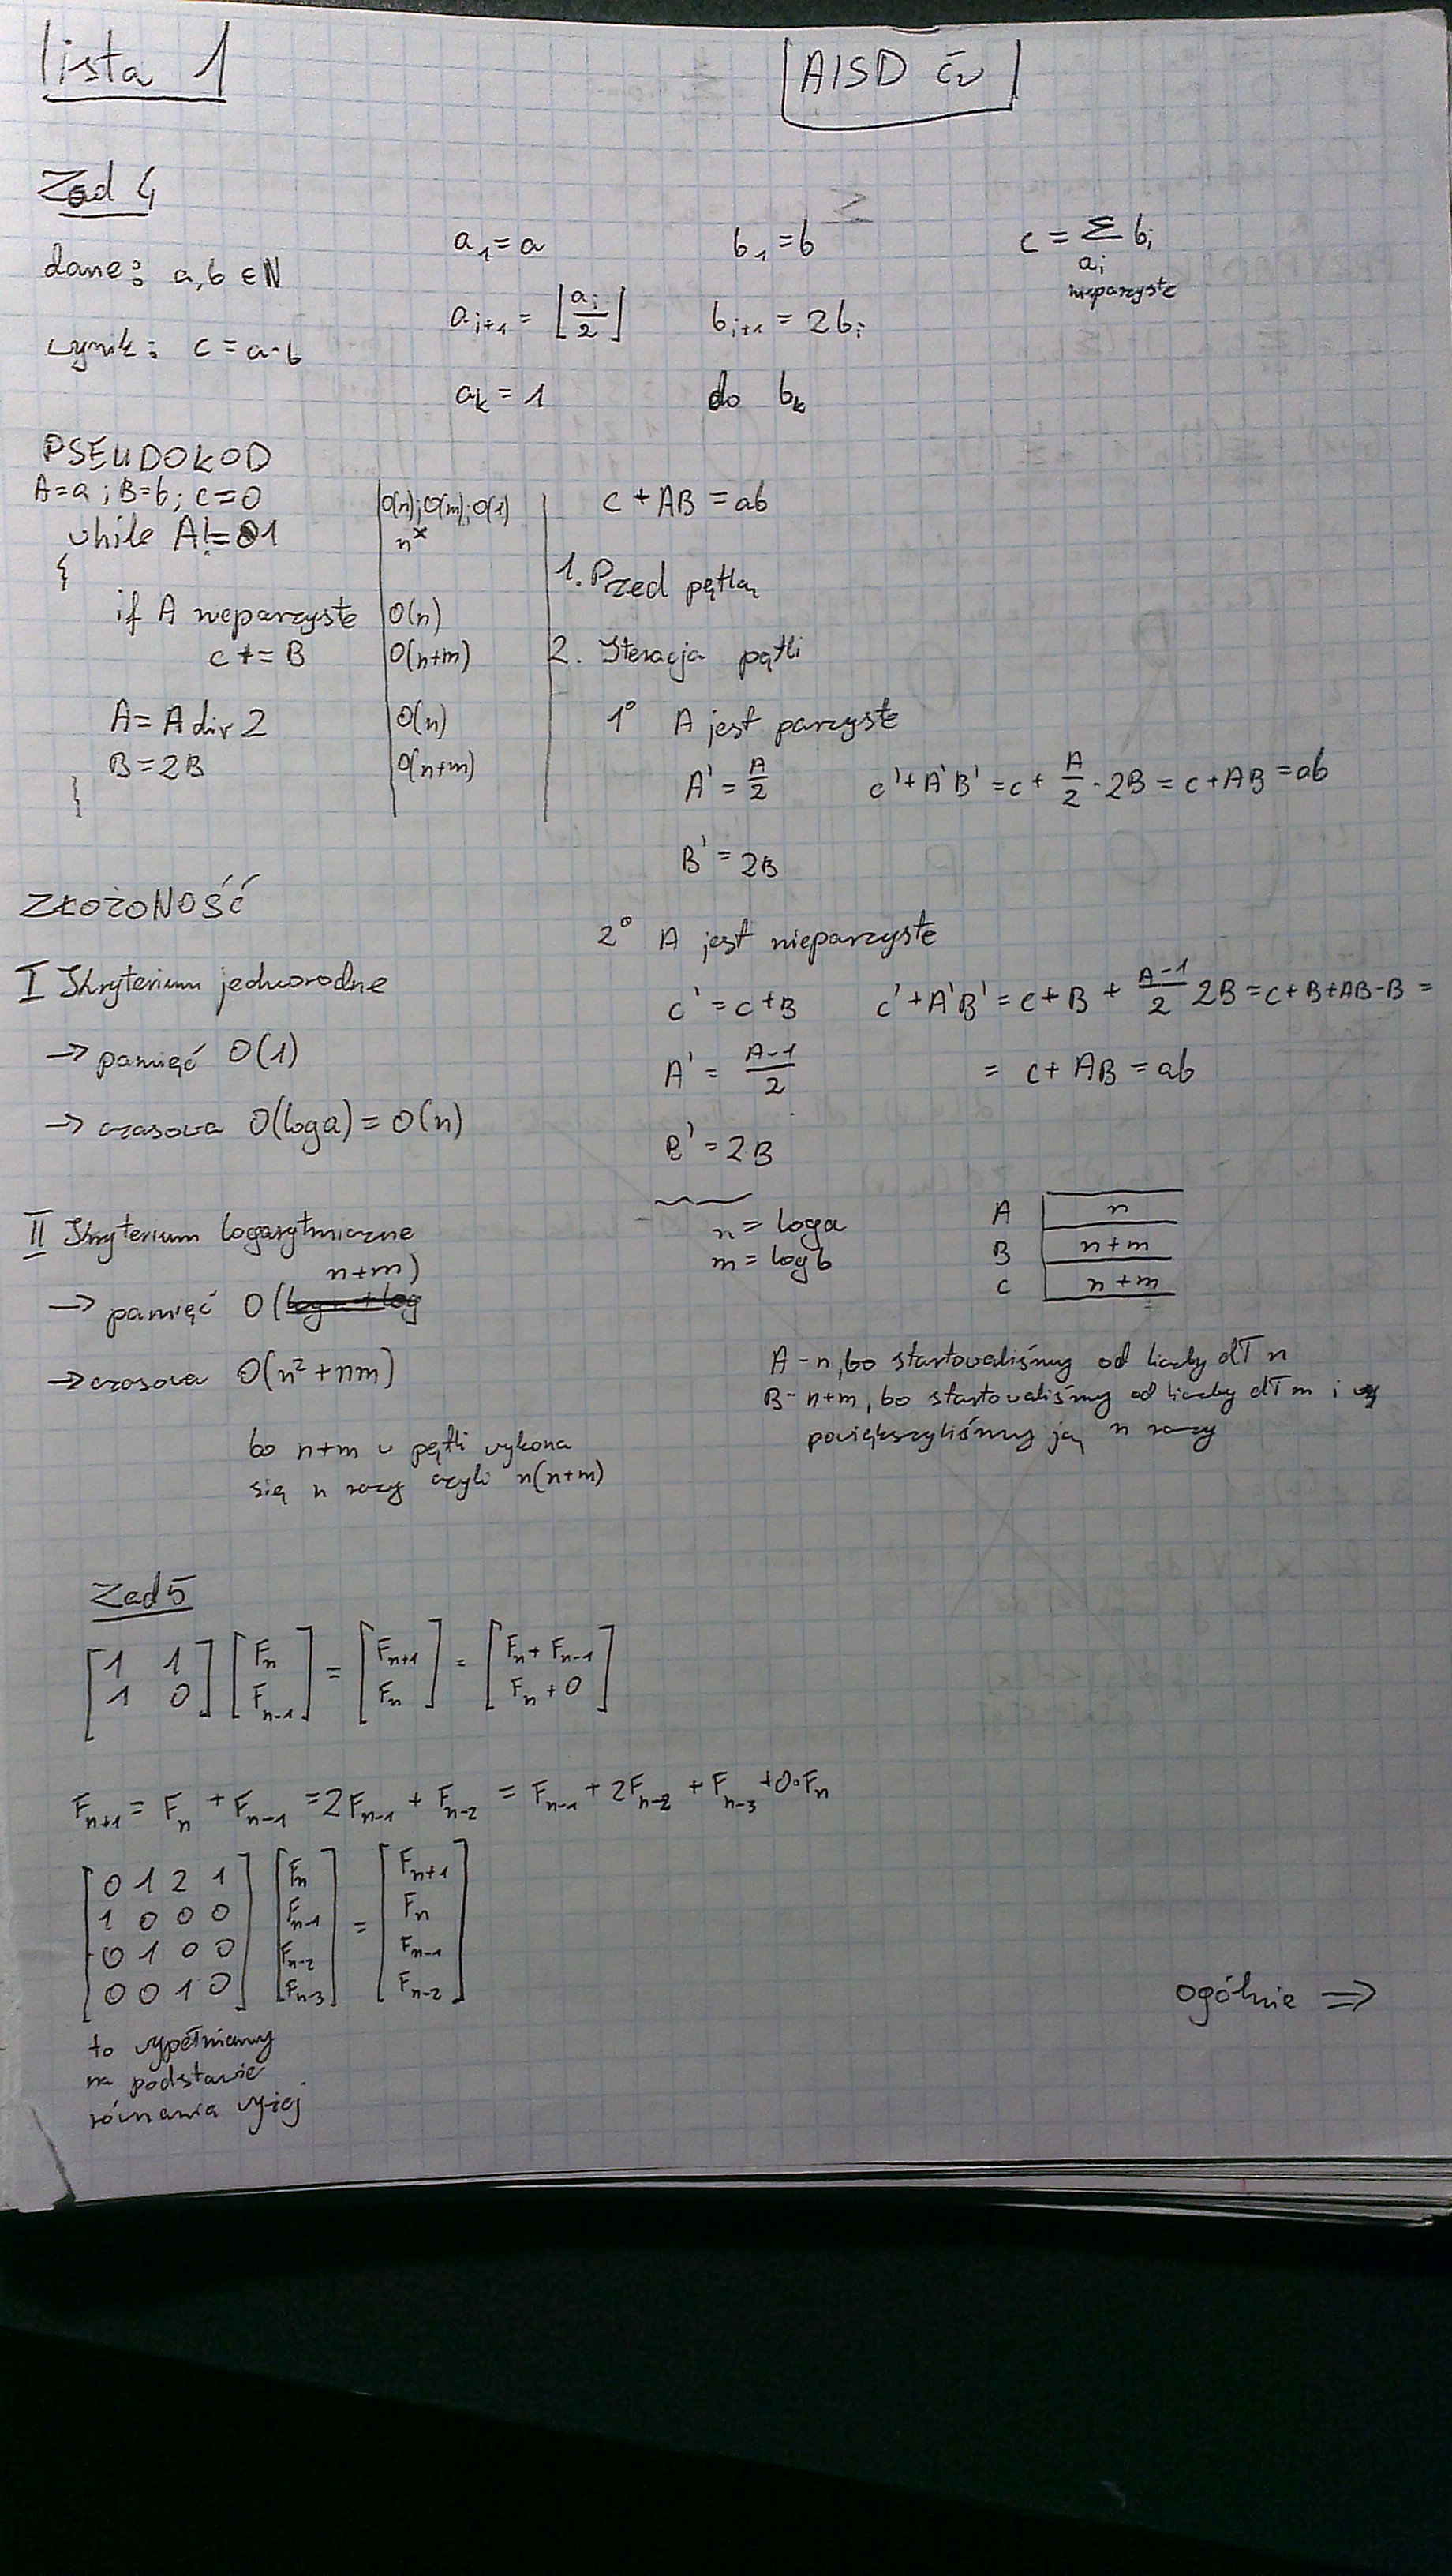 lista 1
AISD ćw
Zad 4
dane: a,b ∈ N
wynik: c = a·b
a₁ = a
b₁ = b
c = Σ bᵢ
aᵢ
nieparzyste
aᵢ₊₁ = ⌊aᵢ/2⌋
bᵢ₊₁ = 2bᵢ
aₖ = 1
do bₖ
PSEUDOKOD
A=a ; B=b ; c=0 | O(n); O(m); O(1)
while A != 1 | n×
{
if A nieparzyste | O(n)
c += B | O(n+m)
A = A div 2 | O(n)
B = 2B | O(n+m)
}
c + AB = ab
1. Przed pętlą
2. Iteracja pętli
1° A jest parzyste
A' = A/2
c' + A'B' = c + A/2 · 2B = c + AB = ab
B' = 2B
2° A jest nieparzyste
c' = c + B
c' + A'B' = c + B + (A-1)/2 2B = c + B + AB - B =
A' = (A-1)/2
= c + AB = ab
B' = 2B
ZŁOŻONOŚĆ
I Kryterium jednorodne
→ pamięć O(1)
→ czasowa O(log a) = O(n)
II Kryterium logarytmiczne
→ pamięć O(n+m)
→ czasowa O(n² + nm)
bo n+m w pętli wykona
się n razy czyli n(n+m)
n = log a
m = log b
A | n
B | n+m
C | n+m
A - n, bo startowaliśmy od liczby dł n
B - n+m, bo startowaliśmy od liczby dł m i
powiększyliśmy ją n razy
Zad 5
[1 1; 1 0] [Fₙ; Fₙ₋₁] = [Fₙ₊₁; Fₙ] = [Fₙ + Fₙ₋₁; Fₙ + 0]
Fₙ₊₁ = Fₙ + Fₙ₋₁ = 2Fₙ₋₁ + Fₙ₋₂ = Fₙ₋₁ + 2Fₙ₋₂ + Fₙ₋₃ + 0·Fₙ
[0 1 2 1; 1 0 0 0; 0 1 0 0; 0 0 1 0] [Fₙ; Fₙ₋₁; Fₙ₋₂; Fₙ₋₃] = [Fₙ₊₁; Fₙ; Fₙ₋₁; Fₙ₋₂]
to wypełniamy
na podstawie
równania wyżej
ogólnie ⇒